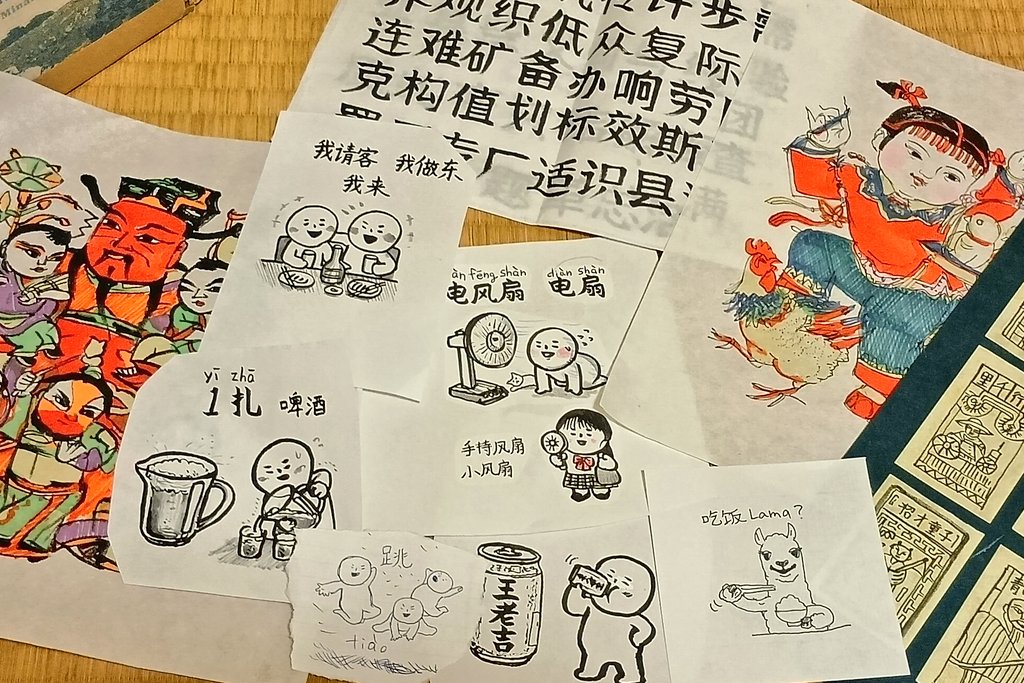 Minar
观织低众复际
连难矿备办响劳
克构值划标效斯
专厂适识县
团查
满
我请客 我做东
我来
àn fēng shàn diàn shàn
电风扇 电扇
yī zhā
1扎 啤酒
手持风扇
小风扇
跳
tiào
王老吉
吃饭Lama?
招才童子